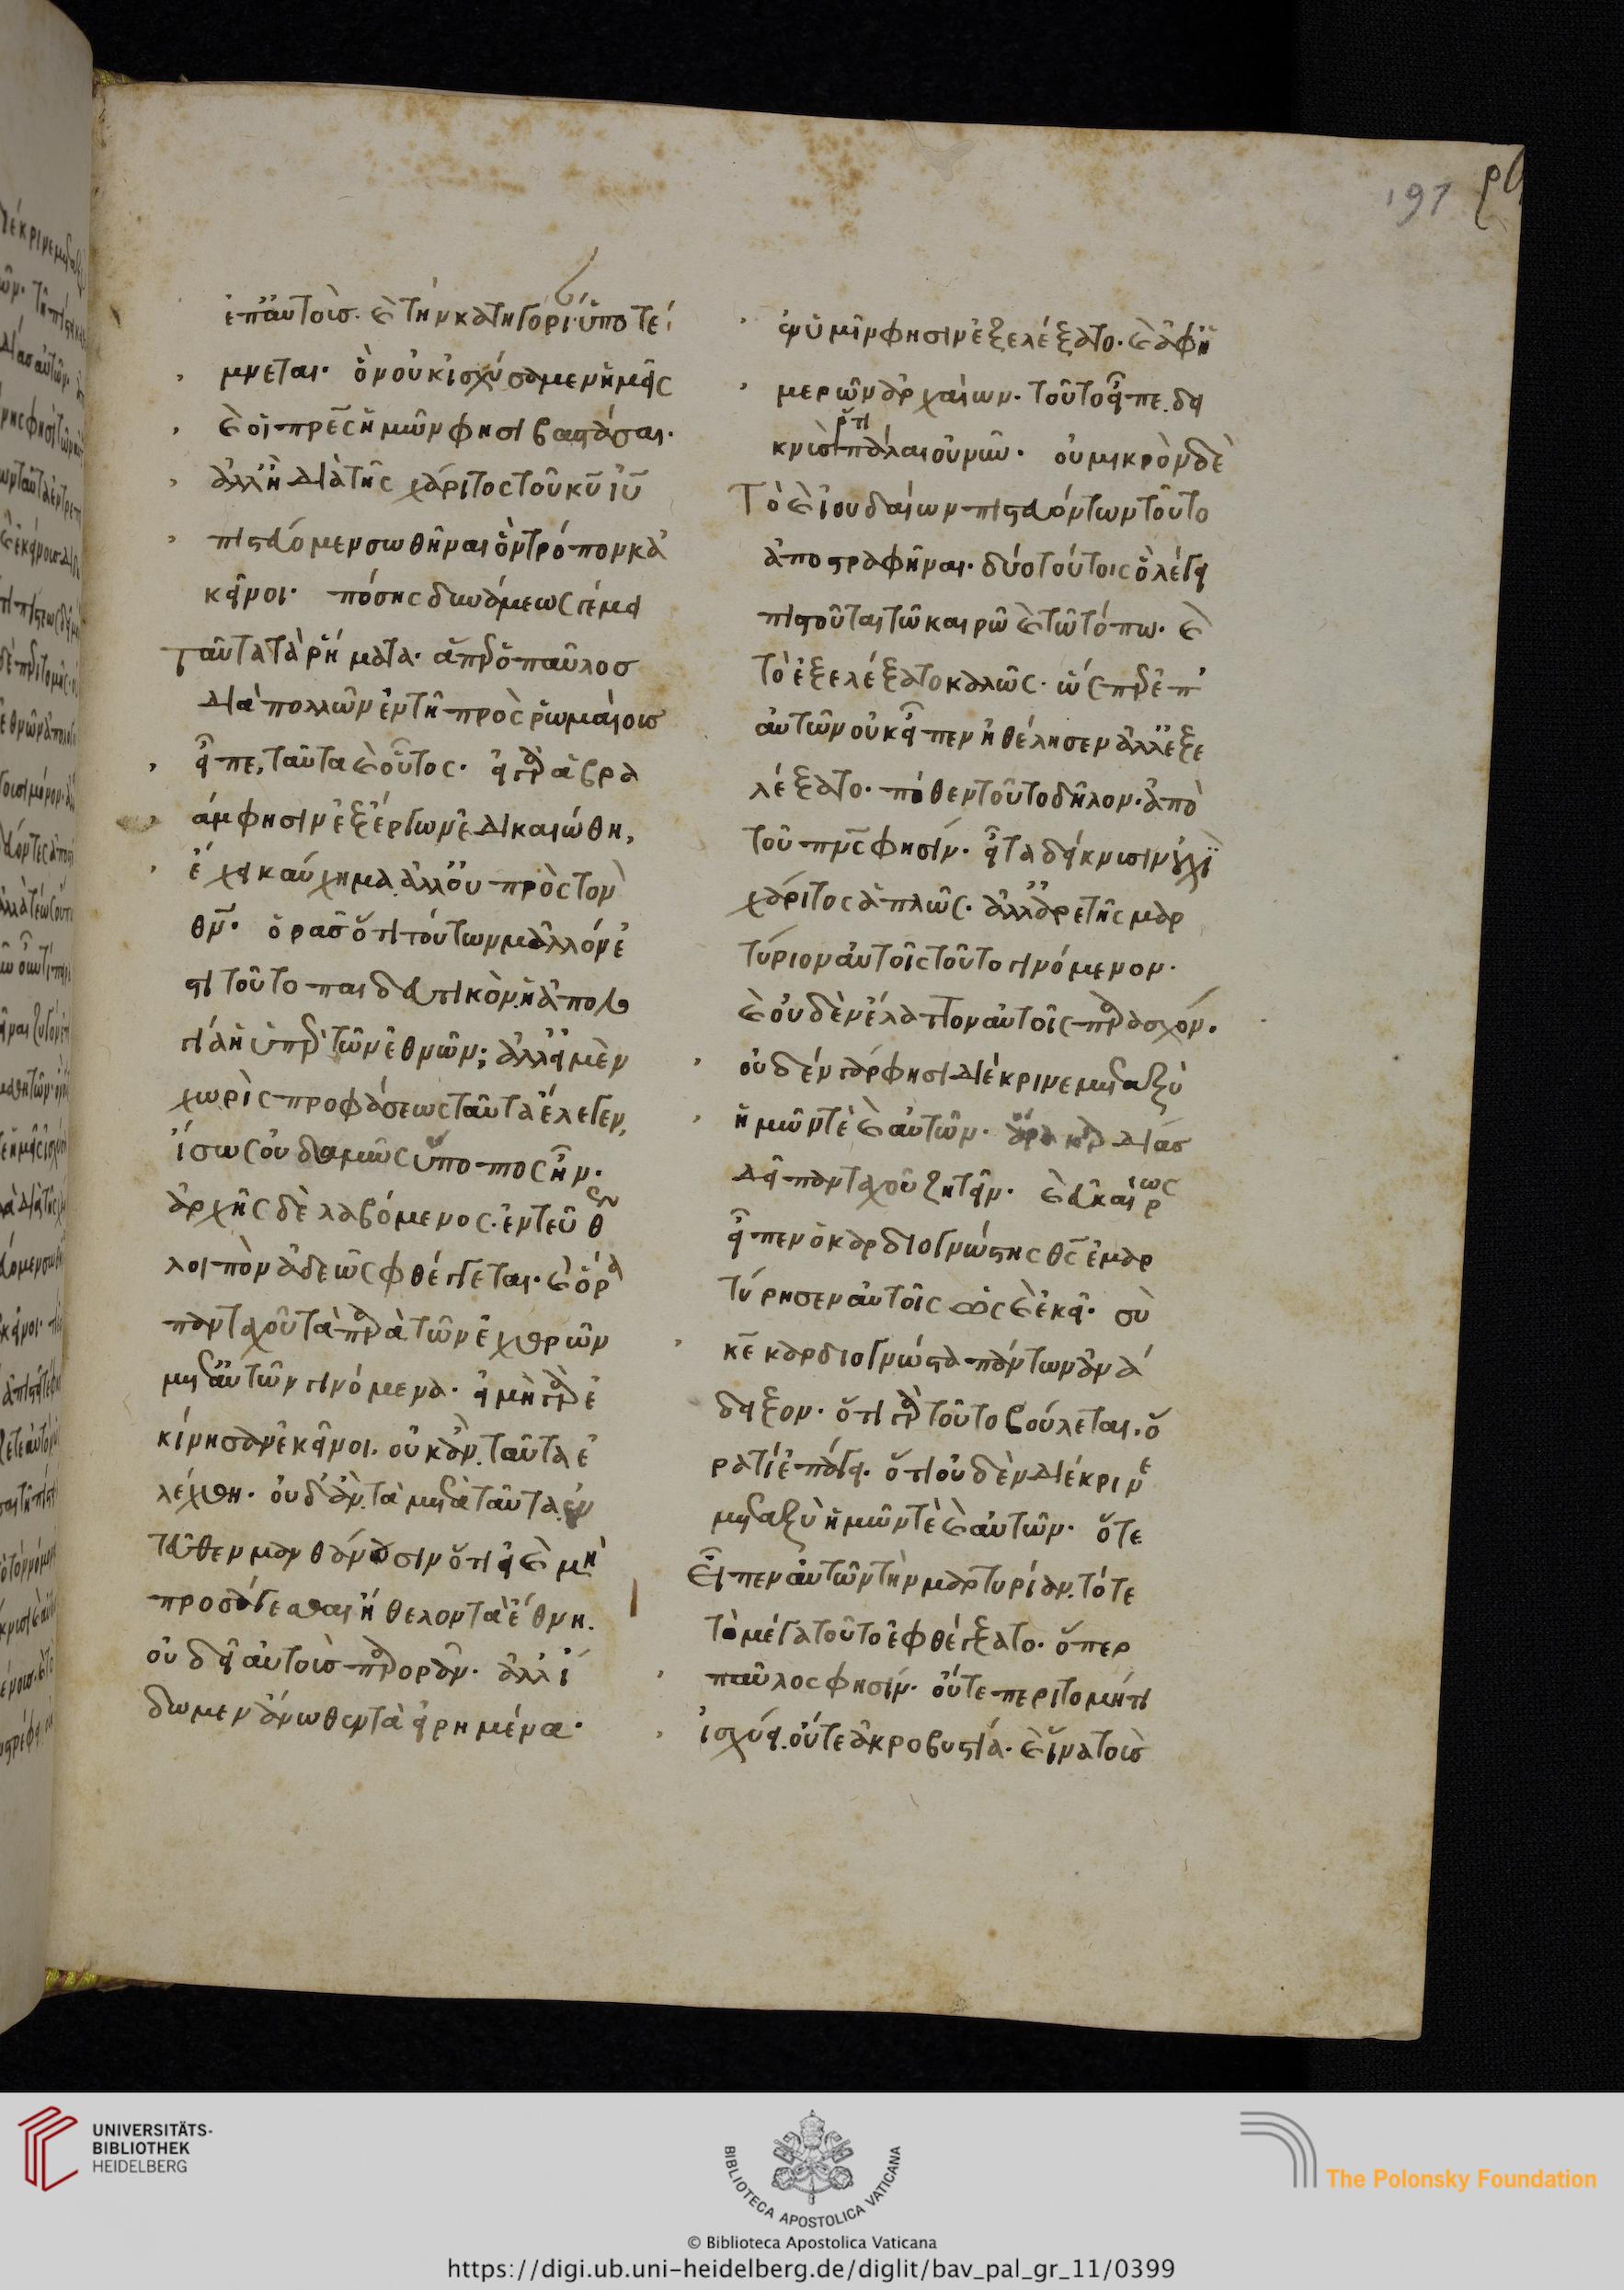 197
ἐπ' αὐτοῖσ. καὶ τὴν κατηγορί ὑποτέ
μνεται. ὃν οὐκ ἰσχύσαμεν ἡμεῖς
καὶ οἱ πρ̅ες ἡμῶν φησὶ βαστάσαι.
ἀλλ' ἢ διὰ τῆς χάριτος τοῦ κ̅υ ι̅υ
πιστεύομεν σωθῆναι ὃν τρόπον κἀ
κεῖνοι. πόσης δυνάμεως γέμει
ταῦτα τὰ ῥήματα. ἅπερ ὁ παῦλοσ
διὰ πολλῶν ἐν τῆ πρὸς ῥωμαίοισ
εἶπε, ταῦτα καὶ οὗτος. εἰ γὰρ ἀβρα
άμ φησιν ἐξ ἔργων ἐδικαιώθη,
ἔχει καύχημα ἀλλ' οὐ πρὸς τὸν
θ̅ν. ὁρᾶσ ὅτι τούτων μᾶλλόν ἐ
στι τοῦτο παιδευτικὸν ἢ ἀπολο
γία ἡ ὑπὲρ τῶν ἐθνῶν; ἀλλ' εἰ μὲν
χωρὶς προφάσεως ταῦτα ἔλεγεν,
ἴσως οὐδαμῶς ὕποπτος ἦν.
ἀρχῆς δὲ λαβόμενος. ἐντεῦθεν
λοιπὸν ἀδεῶς φθέγγεται. καὶ ὅρα
πανταχοῦ τὰ παρὰ τῶν ἐχθρῶν
μετ' αὐτῶν γινόμενα. εἰ μὴ γὰρ ἐ
κίνησαν ἐκεῖνοι. οὐκ ἂν ταῦτα ἐ
λέχθη. οὐδ' ἂν τὰ μετὰ ταῦτα ἐν
τεῦθεν μανθάνωσιν ὅτι εἰ καὶ μὴ
προσάγεσθαι ἤθελον τὰ ἔθνη.
οὐ δεῖ αὐτοῖσ παρορᾶν. ἀλλ' ἴ
δωμεν ἄνωθεν τὰ εἰρημένα.
ἐν ὑμῖν φησιν ἐξελέξατο. καὶ ἀφ' ἡ
μερῶν ἀρχαίων. τοῦτο εἶπε. δει
κνὺσ ὅτι πάλαι οὐ νῦν. οὐ μικρὸν δὲ
τὸ καὶ ἰουδαίων πιστευόντων τοῦτο
ἀποστραφῆναι. δύο τούτοις ὃ λέγει
πιστοῦται τῶ καιρῶ καὶ τῶ τόπω. καὶ
τὸ ἐξελέξατο καλῶς. ὡς περ ἐπ'
αὐτῶν οὐκ εἶπεν ἠθέλησεν ἀλλ' ἐξε
λέξατο. πόθεν τοῦτο δῆλον. ἀπὸ
τοῦ π̅ν̅ς φησίν. εἶτα δείκνυσιν οὐχὶ
χάριτος ἁπλῶς. ἀλλ' ἀρετῆς μαρ
τύριον αὐτοῖς τοῦτο γινόμενον.
καὶ οὐδὲν ἔλαττον αὐτοῖς παρασχόν.
οὐδὲν γάρ φησι διέκρινε μεταξὺ
ἡμῶν τὲ καὶ αὐτῶν. ἄρα καρδίασ
δεῖ πανταχοῦ ζητεῖν. καὶ εὐκαίρως
εἶπεν ὁ καρδιογνώστης θ̅ς ἐμαρ
τύρησεν αὐτοῖς ὡς καὶ ἐκεῖ. σὺ
κ̅ε καρδιογνῶστα πάντων ἀνά
δειξον. ὅτι γὰρ τοῦτο βούλεται. ὅ
ρα τί ἐπάγει. ὅτι οὐδὲν διέκρινε
μεταξὺ ἡμῶν τὲ καὶ αὐτῶν. ὅτε
εἶπεν αὐτῶν τὴν μαρτυρίαν. τότε
τὸ μέγα τοῦτο ἐφθέγξατο. ὅπερ
παῦλος φησίν. οὔτε περιτομή τι
ἰσχύει. οὔτε ἀκροβυστία. καὶ ἵνα τοὺσ
UNIVERSITÄTS-
BIBLIOTHEK
HEIDELBERG
BIBLIOTECA APOSTOLICA VATICANA
The Polonsky Foundation
© Biblioteca Apostolica Vaticana
https://digi.ub.uni-heidelberg.de/diglit/bav_pal_gr_11/0399